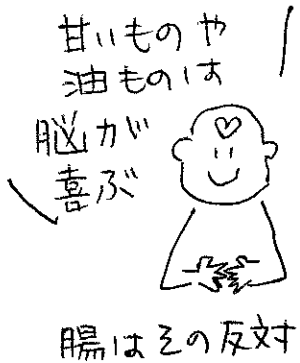 甘いものや
油ものは
脳が
喜ぶ
腸はその反対